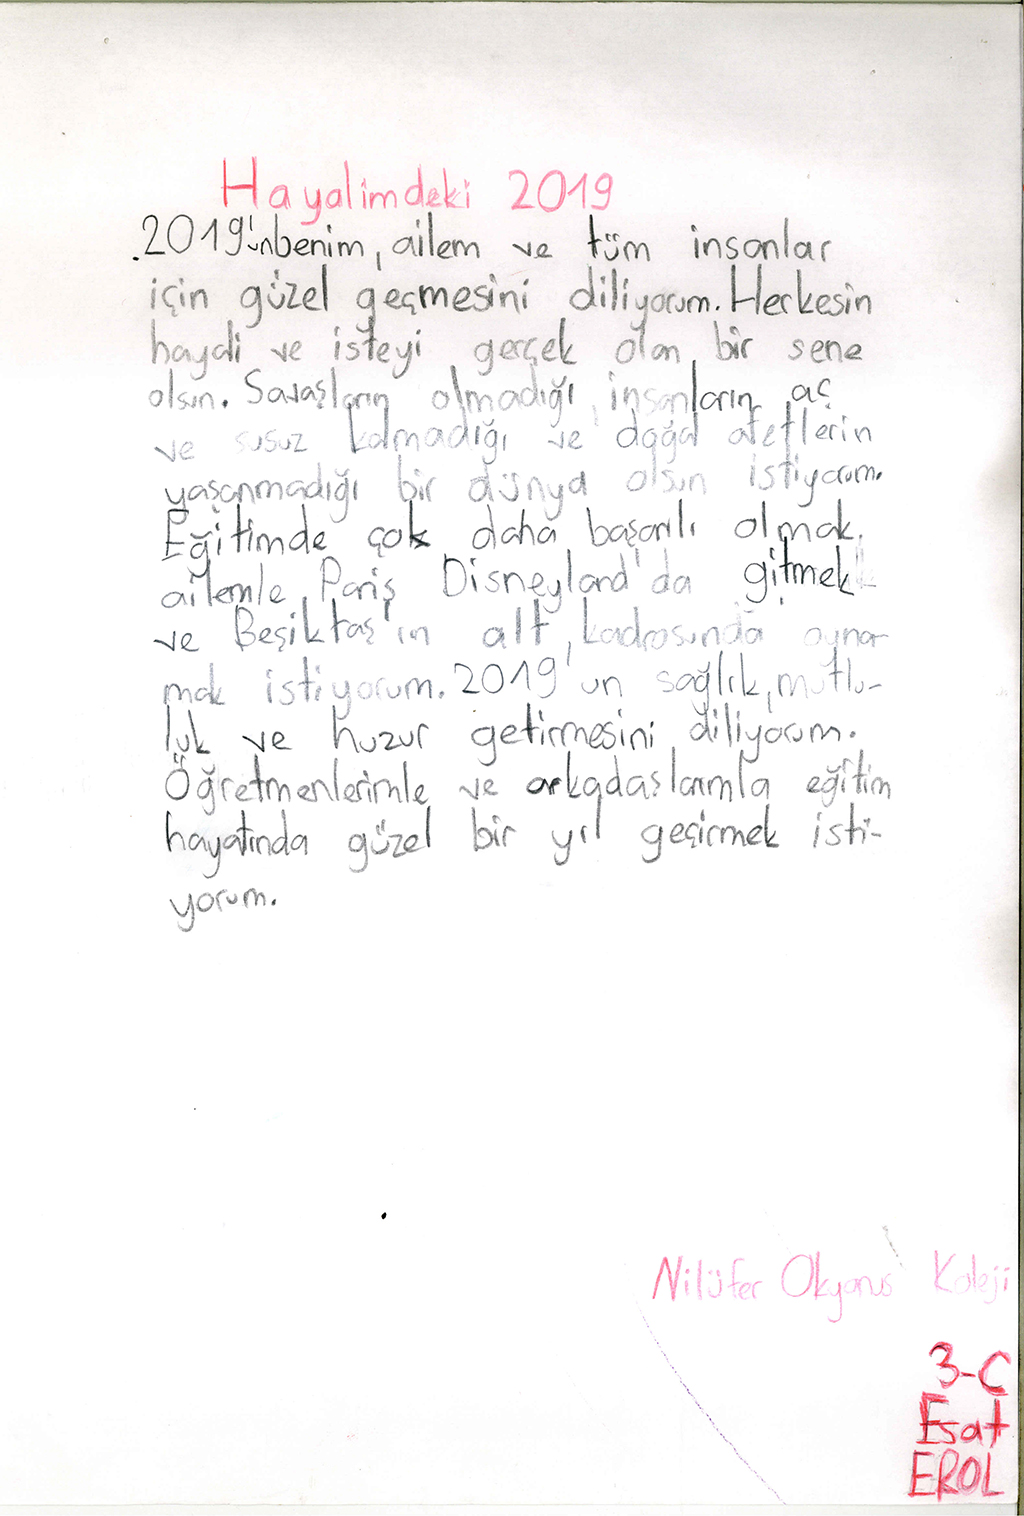 Hayalimdeki 2019
2019'ünbenim, ailem ve tüm insanlar
için güzel geçmesini diliyorum. Herkesin
haydi ve isteyi gerçek olan bir sene
olsun. Savaşların olmadığı, insanların aç
ve susuz kalmadığı ve doğal afetlerin
yaşanmadığı bir dünya olsun istiyorum.
Eğitimde çok daha başarılı olmak,
ailemle Paris Disneyland'da gitmek
ve Beşiktaş'ın alt kadrosunda oyna-
mak istiyorum. 2019'un sağlık, mutlu-
luk ve huzur getirmesini diliyorum.
Öğretmenlerimle ve arkadaşlarımla eğitim
hayatında güzel bir yıl geçirmek isti-
yorum.
Nilüfer Okyanus Koleji
3-C
Esat
EROL